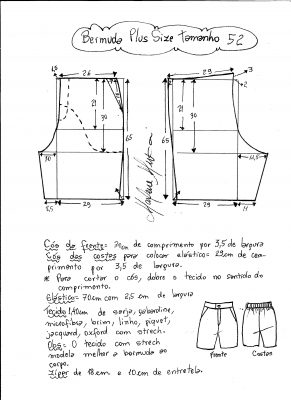 Bermuda Plus Size Tamanho 52
1,5
26
29
3
2
21
30
65
65
21
30
10
11,5
3,5
29
29
11
Cós da frente: 70cm de comprimento por 3,5 de largura
Cós das costas para colocar elástico: 29cm de com-
primento por 3,5 de largura.
* Para cortar o cós, dobre o tecido no sentido do
comprimento.
Elástico: 70cm com 2,5 cm de largura
Tecido 1,40cm de sarja, gabardine,
microfibra, brim, linho, piquet,
jacquard, oxford com strech.
Obs: O tecido com strech
modela melhor a bermuda ao
corpo.
Zíper de 18cm e 10cm de entretela.
Frente
Costas